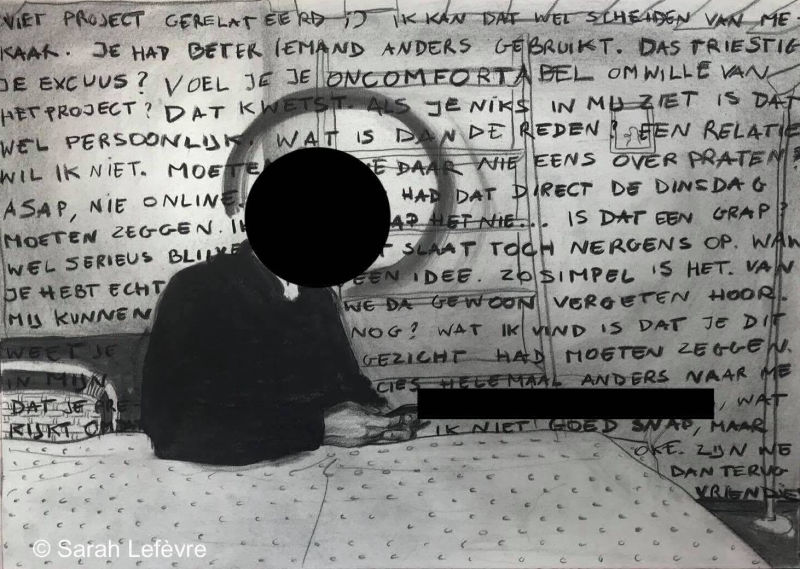 NIET PROJECT GERELATEERD ;) IK KAN DAT WEL SCHEIDEN VAN ME-
KAAR. JE HAD BETER IEMAND ANDERS GEBRUIKT. DAS TRIESTIG
JE EXCUUS? VOEL JE JE ONCOMFORTABEL OMWILLE VAN
HET PROJECT? DAT KWETST. ALS JE NIKS IN MIJ ZIET IS DAT
WEL PERSOONLIJK. WAT IS DAN DE REDEN? EEN RELATIE
WIL IK NIET. MOETEN WE DAAR NIE EENS OVER PRATEN?
ASAP, NIE ONLINE. HAD DAT DIRECT DE DINSDAG
MOETEN ZEGGEN. IK SNAP HET NIE... IS DAT EEN GRAP?
WEL SERIEUS BLIJVE SLAAT TOCH NERGENS OP. WAN
JE HEBT ECHT EEN IDEE. ZO SIMPEL IS HET. VAN
MIJ KUNNEN WE DA GEWOON VERGETEN HOOR.
WEET JE NOG? WAT IK VIND IS DAT JE DIT
IN MIJN GEZICHT HAD MOETEN ZEGGEN.
DAT JE PRECIES HELEMAAL ANDERS NAAR ME
KIJKT OMDA , WAT
IK NIET GOED SNAP, MAAR
OKE. ZIJN WE
DAN TERUG
VRIENDJE
© Sarah Lefèvre